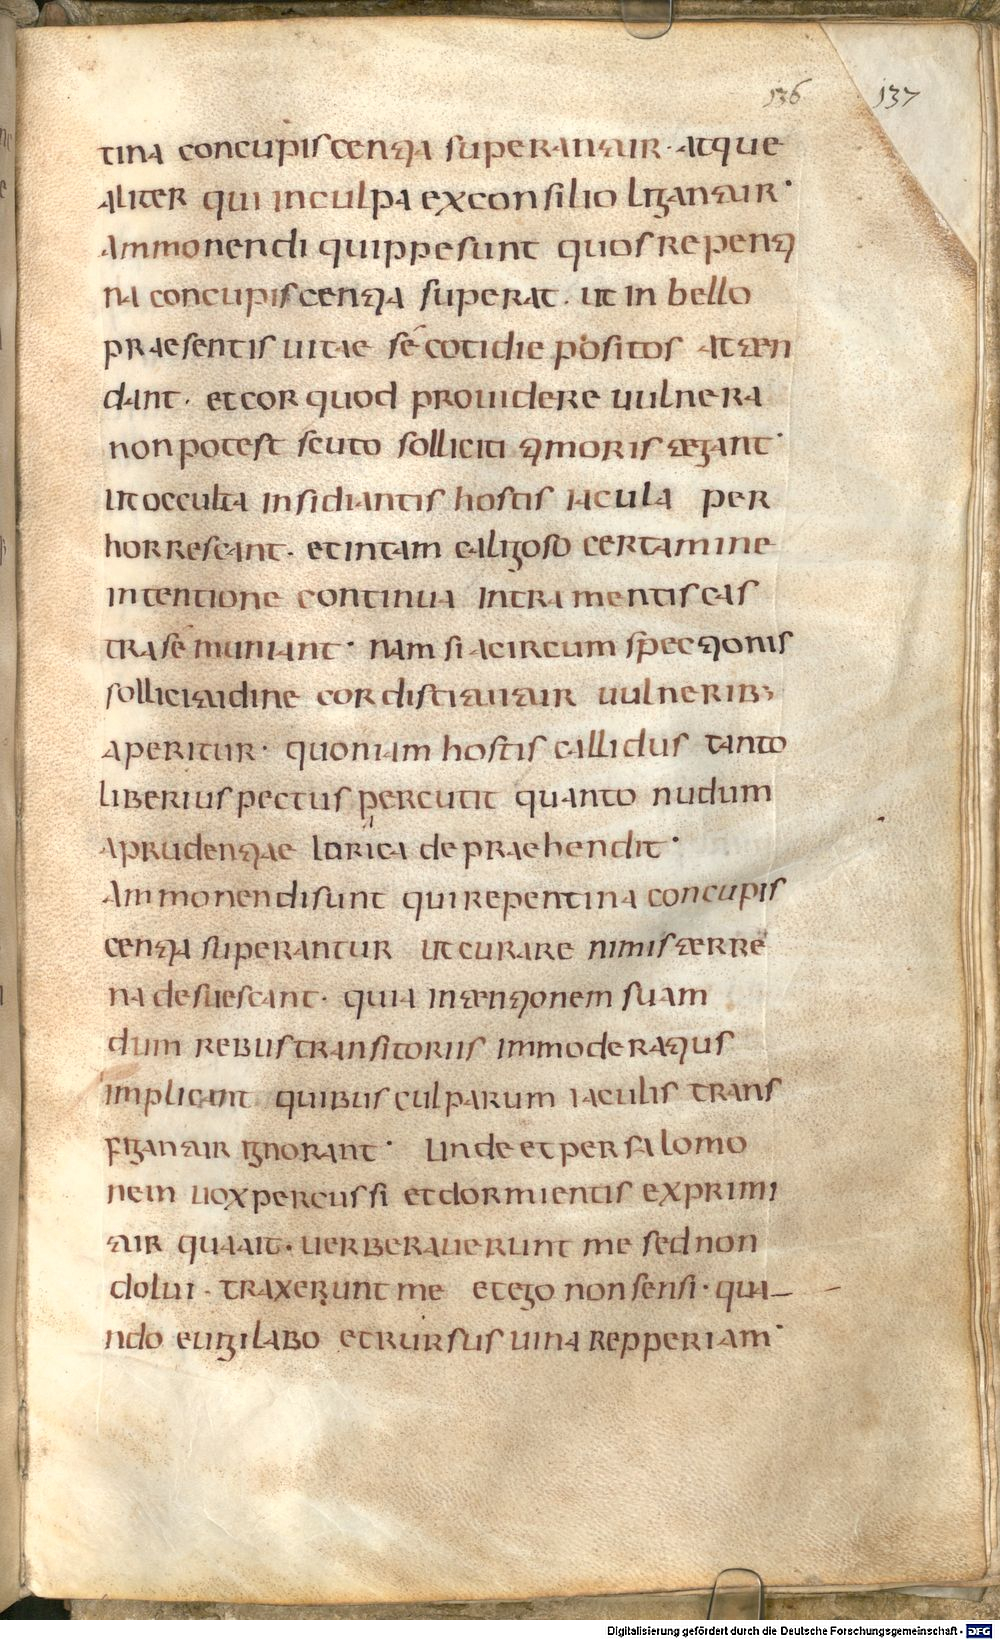 136 137
tina concupiscentia superantur · atque
aliter qui in culpa ex consilio ligantur ·
Ammonendi quippe sunt quos repenti
na concupiscentia superat · ut in bello
praesentis uitae sé cotidie positos at ten
dant · et cor quod prouidere uulnera
non potest scuto solliciti timoris tegant ·
ut occulta insidiantis hostis iacula per
horrescant · et in tam caligoso certamine
intentione continua intra mentis cas
tra sé muniant · nam si a circumspectionis
sollicitudine cor distituitur uulnerib;
aperitur · quoniam hostis callidus tanto
liberius pectus percutit quanto nudum
a prudentiae lorica depraehendit ·
Ammonendi sunt qui repentina concupis
centia superantur ut curare nimis terre
na desuescant · quia intentionem suam
dum rebus transitoriis immoderatius
implicant quibus culparum iaculis trans
figantur ignorant · Unde et per salomo
nem uox percussi et dormientis exprimi
tur qua ait · uerberauerunt me sed non
dolui · traxerunt me et ego non sensi · qua
ndo euigilabo et rursus uina repperiam ·
Digitalisierung gefördert durch die Deutsche Forschungsgemeinschaft - DFG